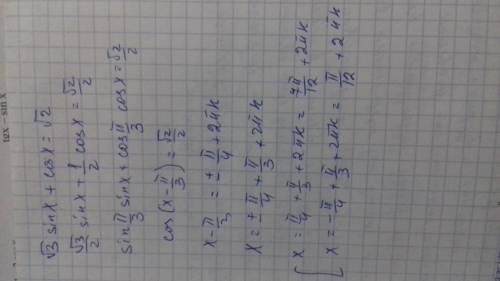 tgx - sin x
√3 sin x + cos x = √2
√3/2 sin x + 1/2 cos x = √2/2
sin π/3 sin x + cos π/3 cos x = √2/2
cos(x - π/3) = √2/2
x - π/3 = ± π/4 + 2πk
x = ± π/4 + π/3 + 2πk
[ x = π/4 + π/3 + 2πk = 7π/12 + 2πk
x = - π/4 + π/3 + 2πk = π/12 + 2πk